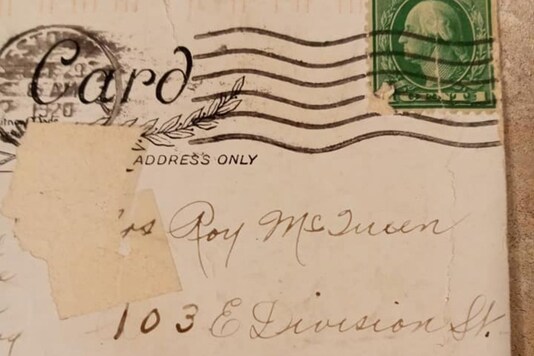 Card
ADDRESS ONLY
rs Roy McQueen
103 E Division St.